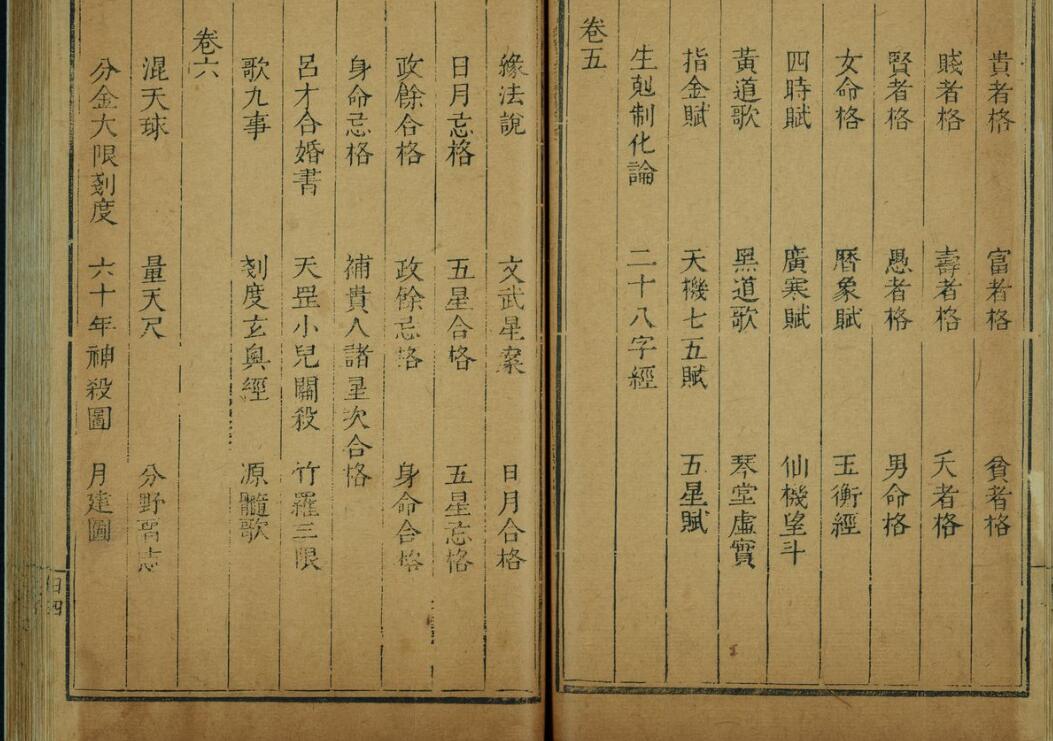 貴者格 富者格 貧者格
賤者格 壽者格 夭者格
賢者格 愚者格 男命格
女命格 曆象賦 玉衡經
四時賦 廣寒賦 仙機望斗
黃道歌 黑道歌 琴堂虛實
指金賦 天機七五賦 五星賦
生剋制化論 二十八字經
卷五
緣法說 文武星案 日月合格
日月忌格 五星合格 五星忌格
政餘合格 政餘忌格 身命合格
身命忌格 補貴人諸星次合格
呂才合婚書 天罡小兒關殺 竹羅三限
歌九事 刻度玄奧經 源髓歌
卷六
混天球 量天尺 分野 志
分金大限刻度 六十年神殺圖 月建圖
目四